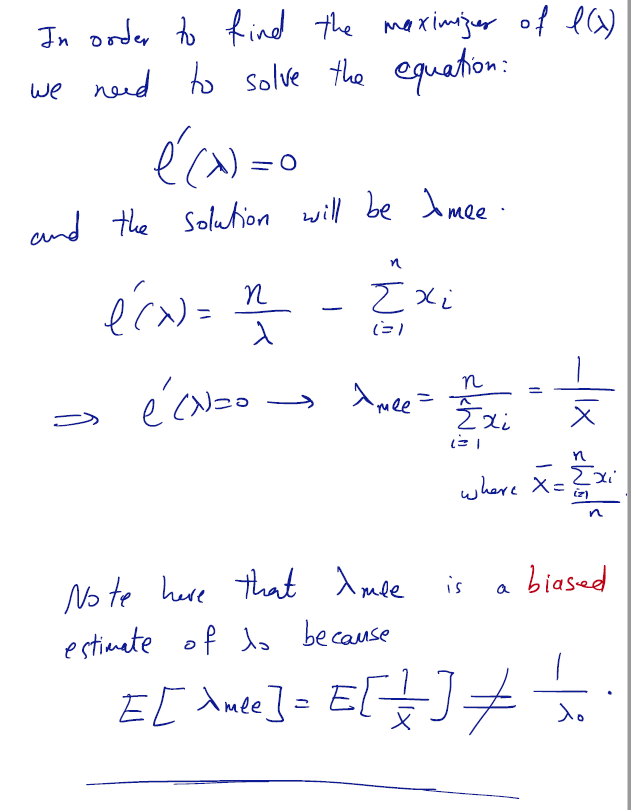 In order to find the maximizer of ℓ(λ)
we need to solve the equation:
ℓ′(λ) = 0
and the solution will be λmle .
ℓ′(λ) = n/λ − ∑_{i=1}^{n} xi
⇒ ℓ′(λ)=0 → λmle = n / ∑_{i=1}^{n} xi = 1/X̄
where X̄ = ∑_{i=1}^{n} xi / n .
Note here that λmle is a biased
estimate of λ₀ because
E[λmle] = E[1/X̄] ≠ 1/λ₀ .